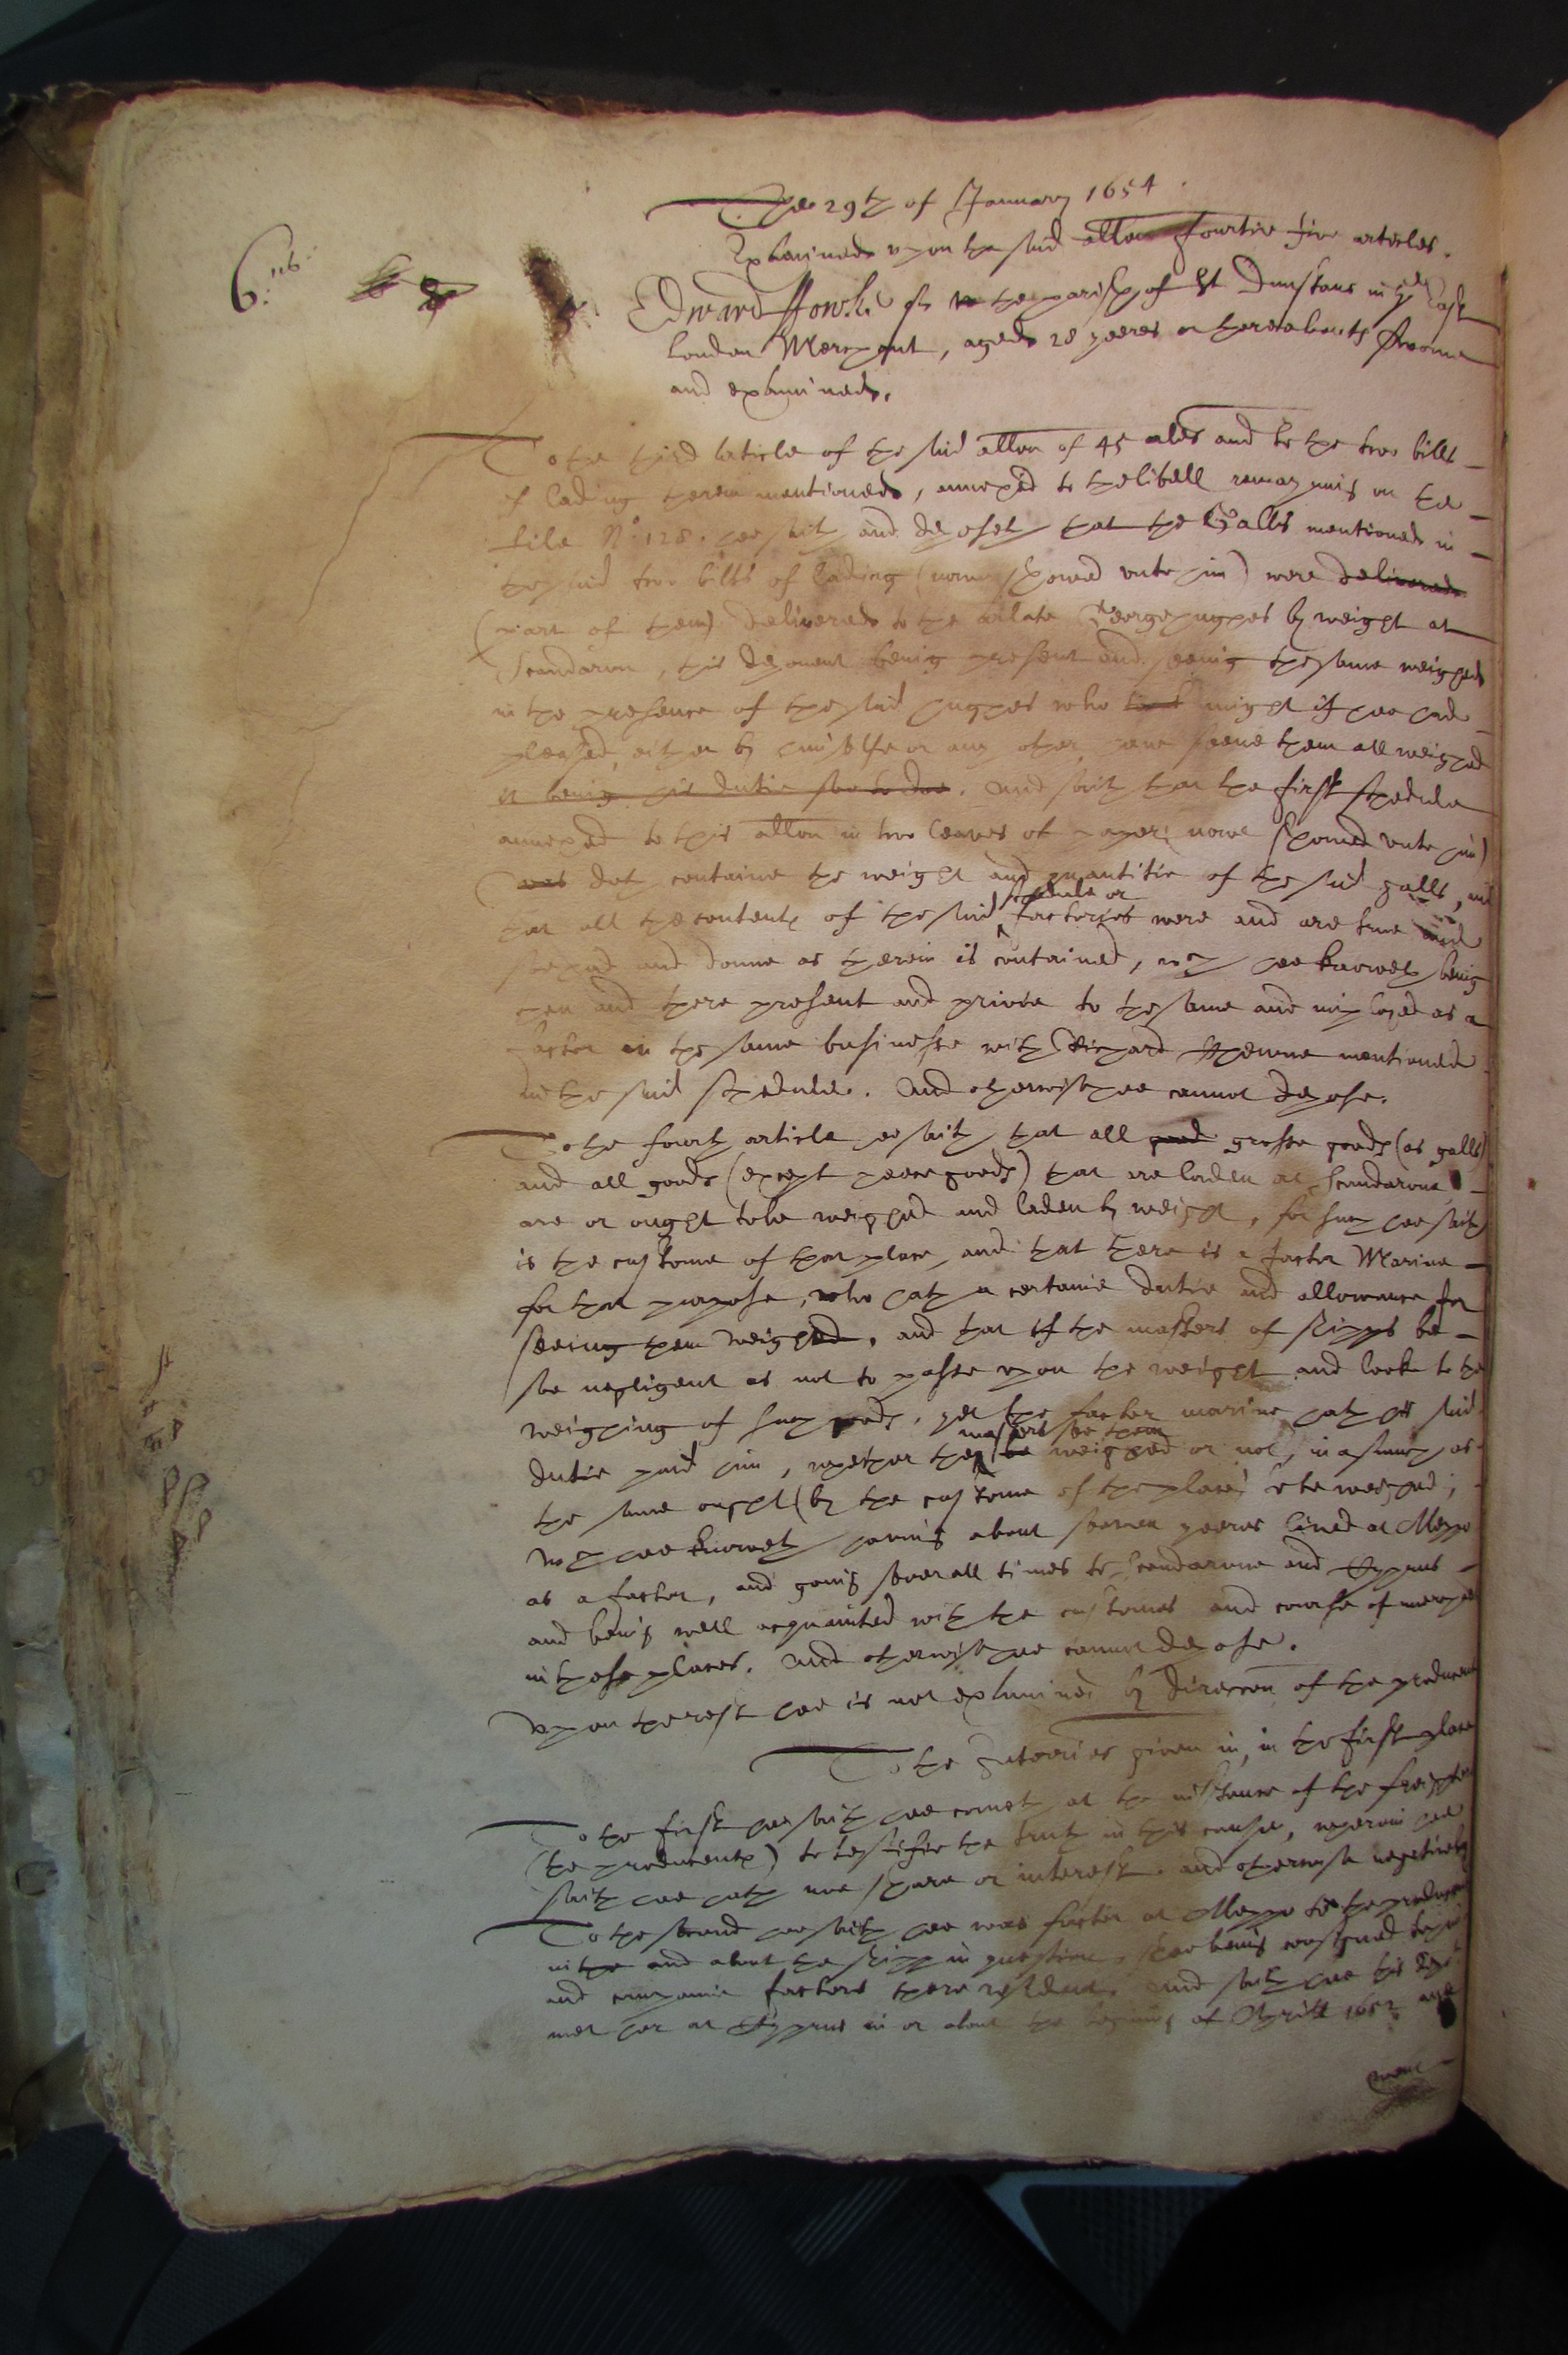 The 29th of January 1654.
Examined upon the said allon fourtie five articles.
6.us.
8
Edward ffowke of the parish of St Dunstans in ye East
London Merchant, aged 28 yeeres or thereabouts sworne
and examined.
To the third article of the said allon of 45 ales and to the two bills
of lading therein mentioned, annexed to the libell remayning on the
file No. 128. hee saith and deposeth that the Galls mentioned in
the said two bills of lading (now showed unto him) were delivered
(part of them) delivered to the arlate George hughes by weight at
Scandaron, this deponent being present and seeing the same weighed
in the presence of the said hughes who might if hee had
pleased, either by himselfe or any other have seene them all weighed
it being his dutie soe to doe. And saith that the first schedule
annexed to this allon in two leaves of paper (now showed unto him)
doth containe the weight and quantitie of the said galls, and
that all the contents of the said schedule or factories were and are true and
soe had and donne as therein is contained, wch hee knoweth being
then and there present and privie to the same and imployed as a
factor in the same businesse with Richard mentioned
in the said schedule. And otherwise hee cannot depose.
To the fourth article hee saith that all good grosse goods (as galls)
and all goods (except peece goods) that are laden at Scandarone
are or ought to be weighed and laden by weight, for such hee saith
is the custome of that place, and that there is a factor Marine
for that purpose, who hath a certaine dutie and allowance for
seeing them weighed, and that if the masters of shipps be
soe negligent as not to passe upon the weight and looke to the
weighing of such goods, yet the factor marine hath his said
dutie paid him, whether the masters see them be weighed or not, in asmuch as
the same ought (by the custome of the place) to be weighed;
wch hee knoweth having about seaven yeeres lived at Aleppo
as a factor, and going severall times to Scandarone and Cyprus
and being well acquainted with the customes and course of merchts
in those places. And otherwise hee cannot depose.
Upon the rest hee is not examined by direccon of the producent
To the Interies given in, in the first place
To the first hee saith hee cometh at the instance of the freighters
(the producents) to testifie the truth in this cause, wherein hee
saith hee hath noe share or interest. and otherwise negatively
To the second hee saith hee was factor at Aleppo to the producents
in the and about the shipp in question, shee being consigned to him
and companie factors there resident. And saith hee this dept
met her at Cyprus in or about the begining of Aprill 1652 and
went